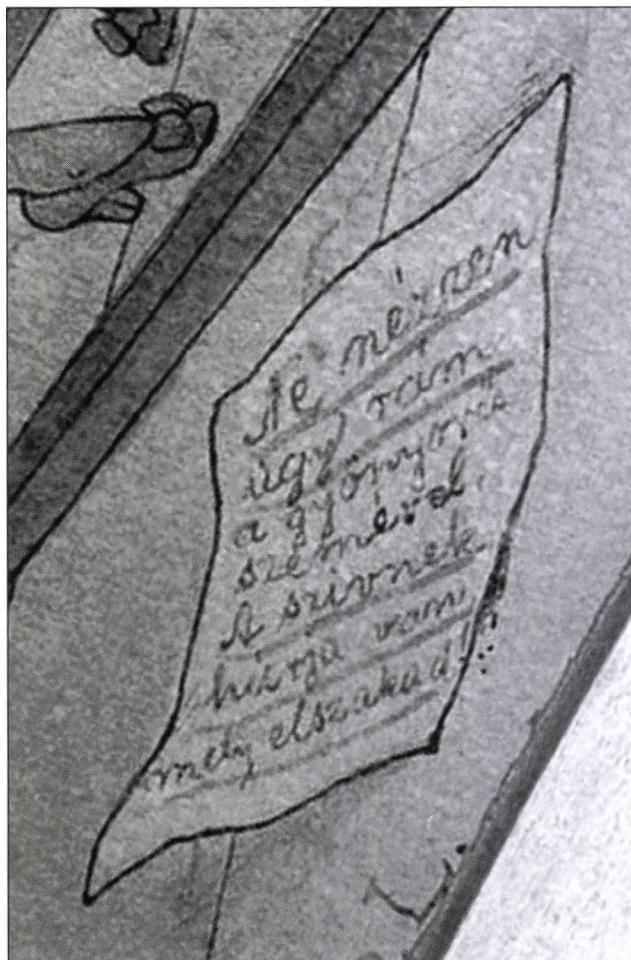 Ne nézzen
úgy rám
a gyönyörü
szemével.
A szívnek
húrja van,
mely elszakad!